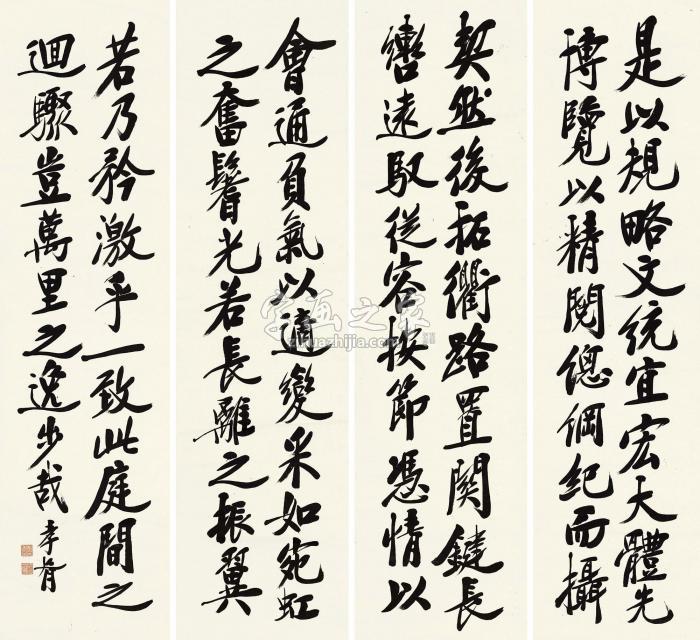 是以規略文統宜宏大體先
博覽以精閱總綱紀而攝
契然後拓衢路置關鍵長
轡遠馭從容按節憑情以
會通負氣以適變采如宛虹
之奮鬐光若長離之振翼
若乃矜激乎一致此庭間之
迴驟豈萬里之逸步哉 孝胥
字画之家
zihuazhijia.com